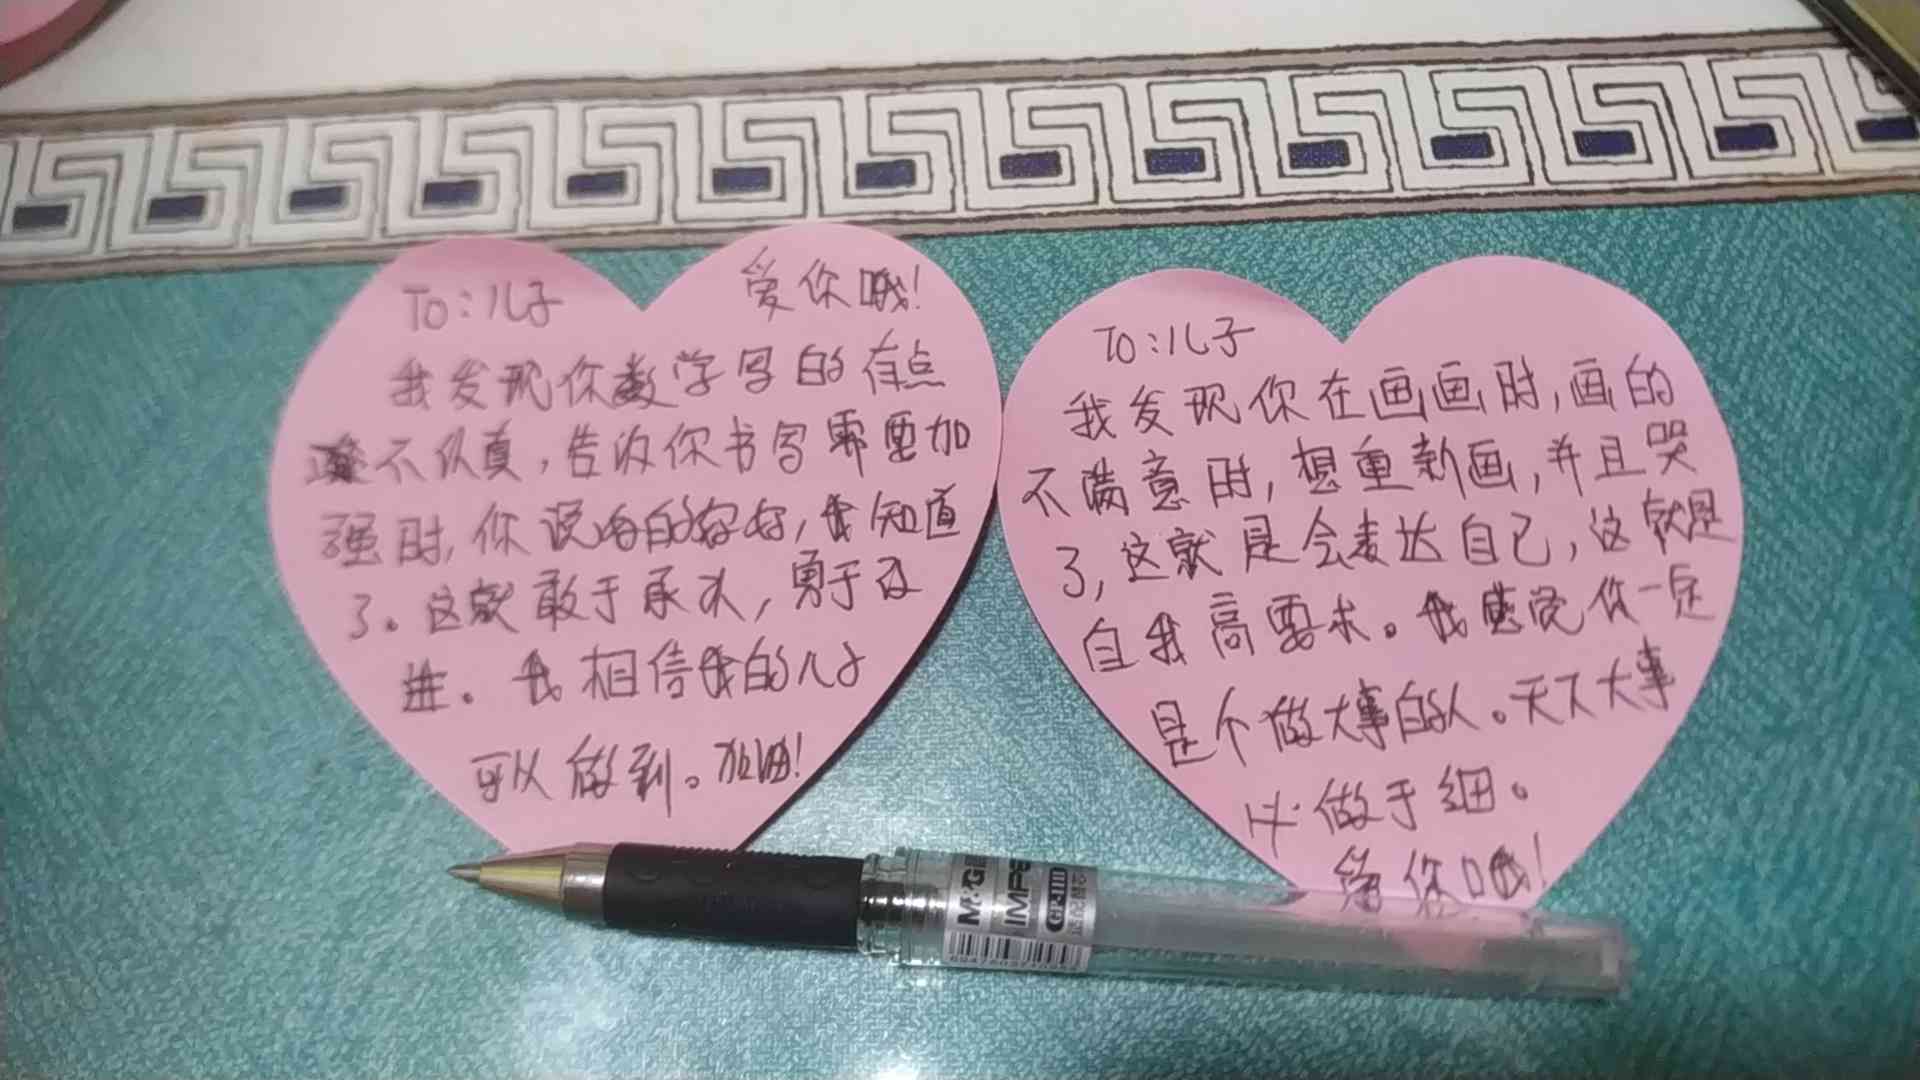 To:儿子
爱你哦!
我发现你数学写的有点
不认真,告诉你书写需要加
强时,你说好的好好,我知道
了。这就敢于承认,勇于改
进。我相信我的儿子
可以做到。加油!
To:儿子
我发现你在画画时,画的
不满意时,想重新画,并且哭
了,这就是会表达自己,这就是
自我高要求。我感觉你一定
是个做大事的人。天下大事
必做于细。
爱你哦!
M&G
IMPE
GP-1111